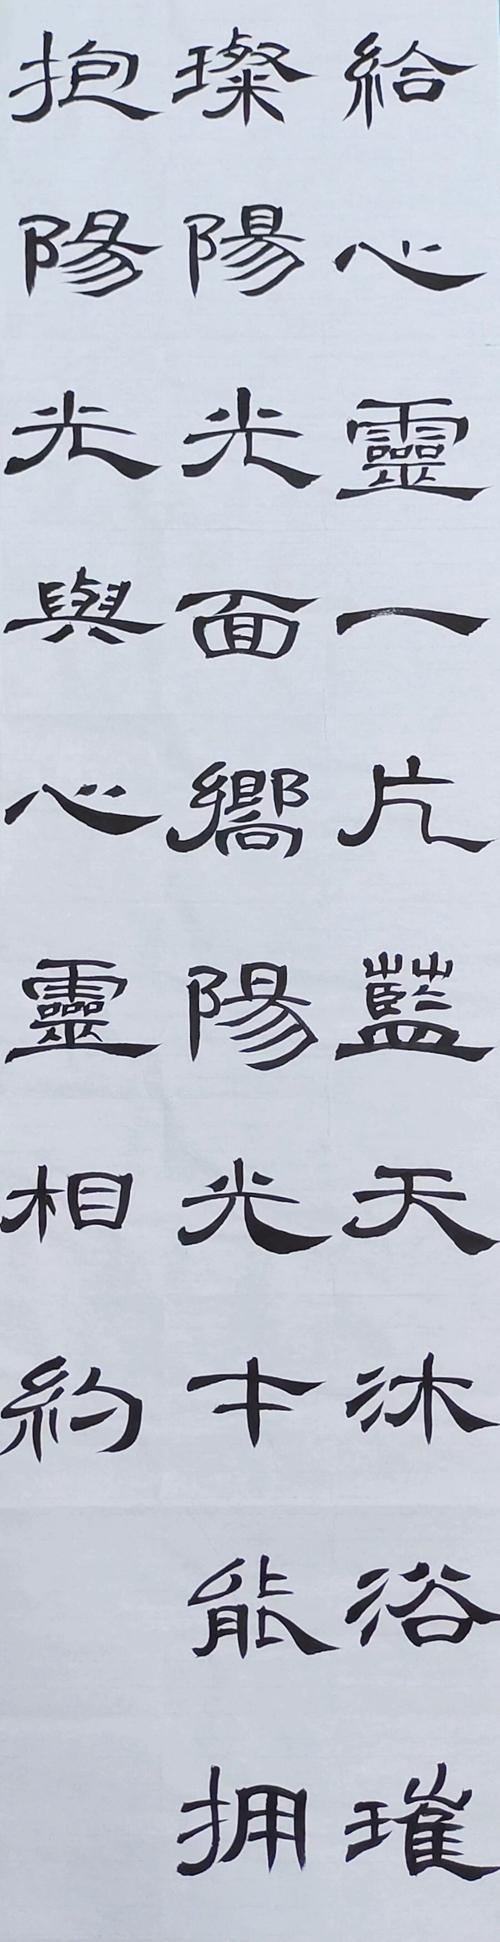 給心靈一片藍天沐浴璀
璨陽光面嚮陽光才能拥
抱陽光與心靈相約